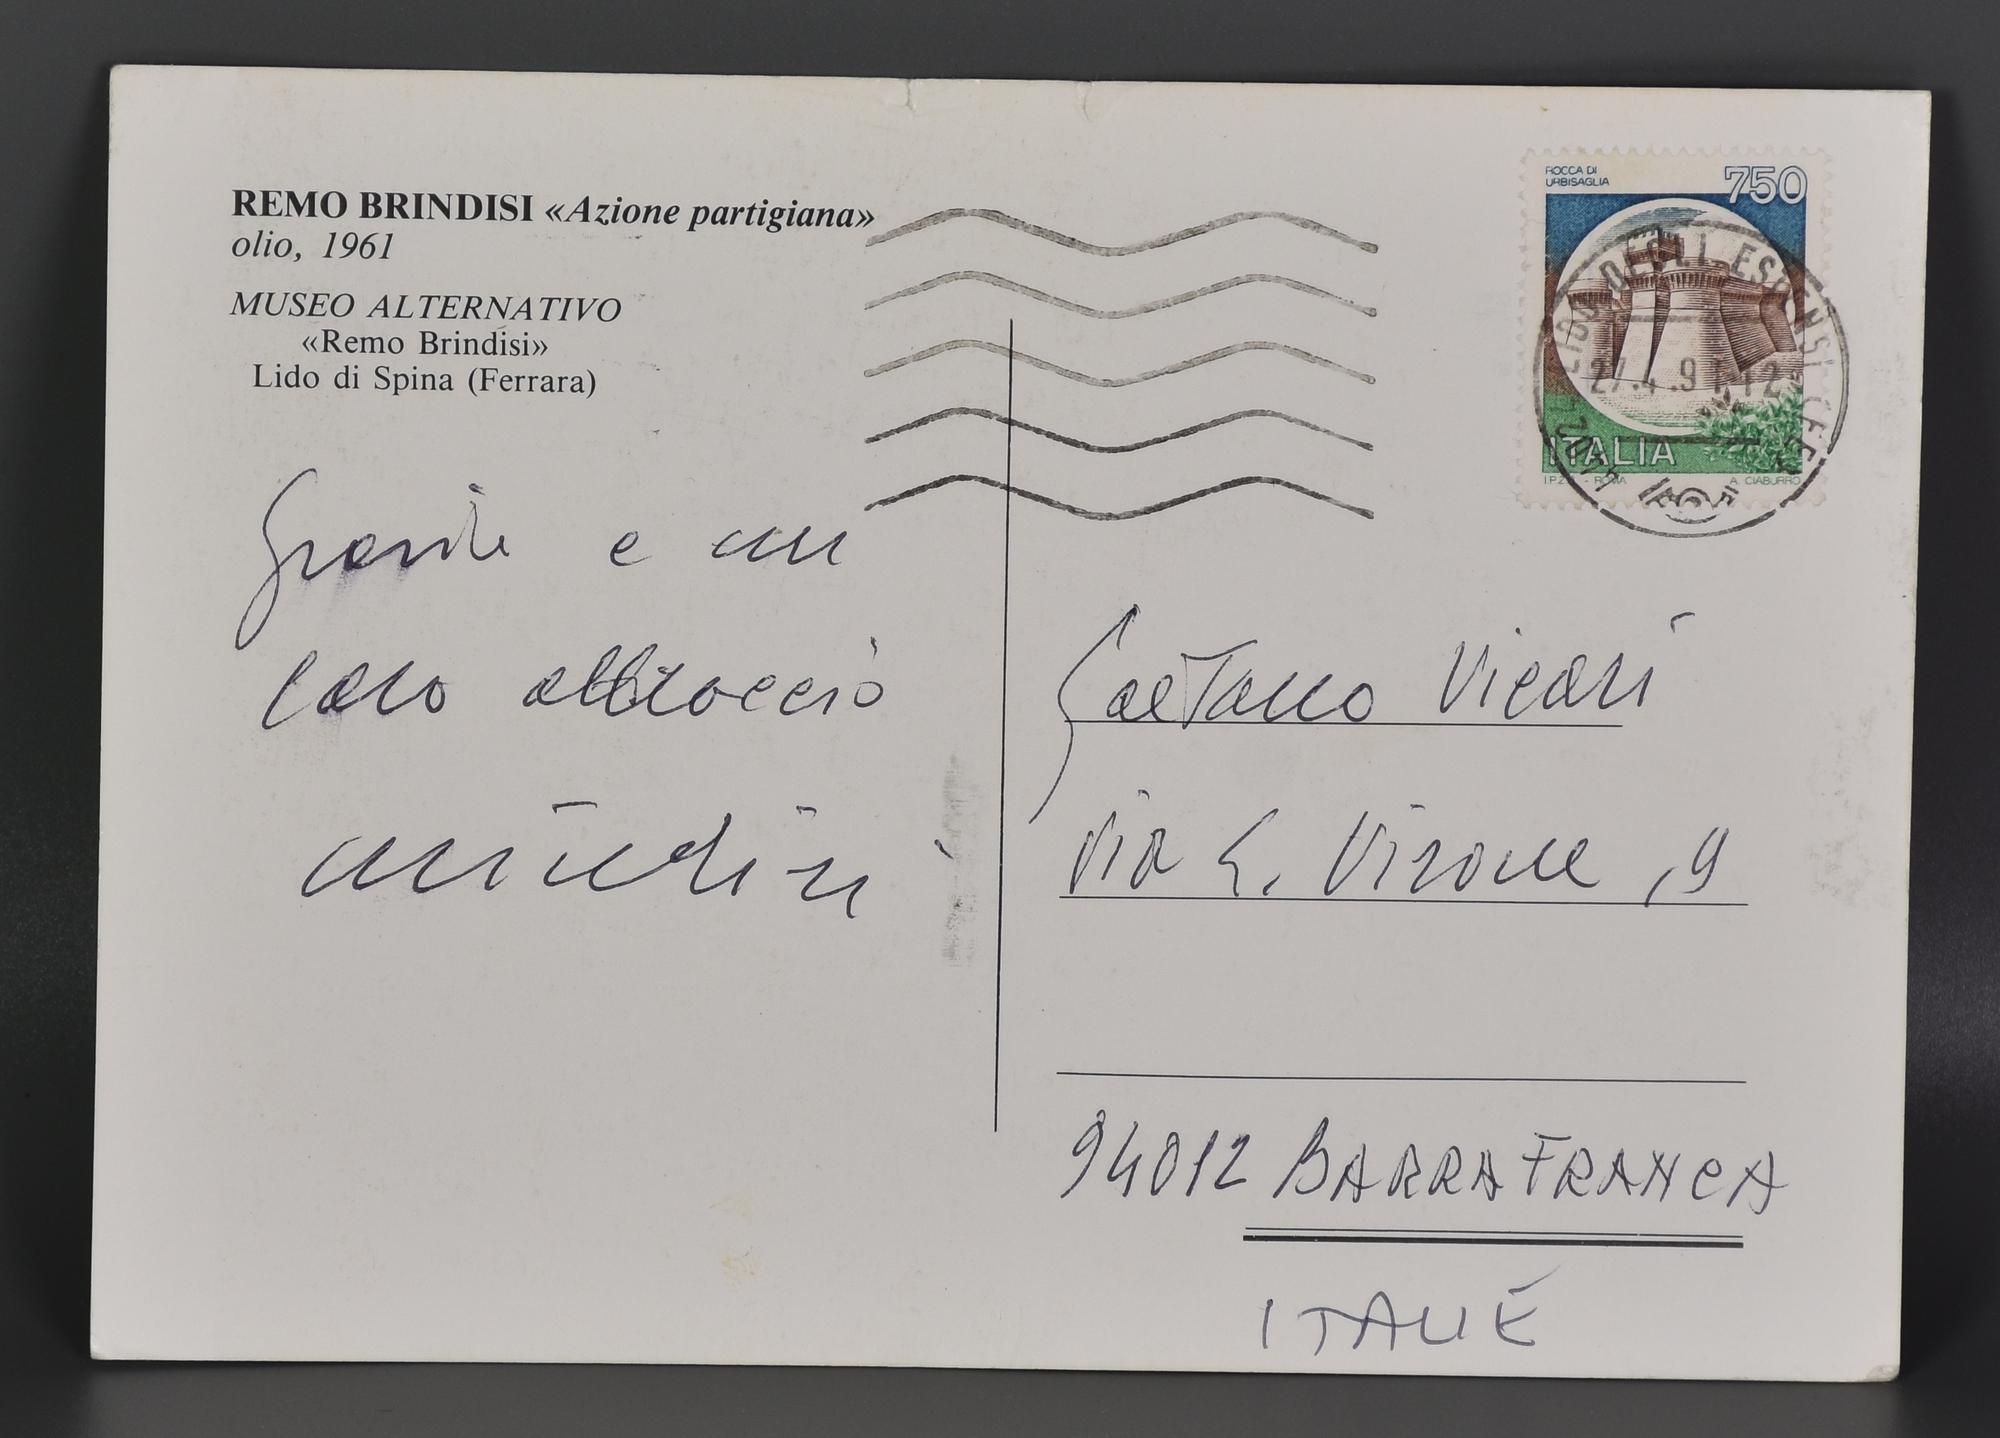 REMO BRINDISI «Azione partigiana»
olio, 1961
MUSEO ALTERNATIVO
«Remo Brindisi»
Lido di Spina (Ferrara)
Grazie e un
caro abbraccio
ROCCA DI
URBISAGLIA
750
LIDO DEGLI ESTENSI (FE)
ITALIA
I.P.Z.S. - ROMA A. CIABURRO
Gaetano Vicari
Via G. Virone, 9
94012 BARRAFRANCA
ITALIE